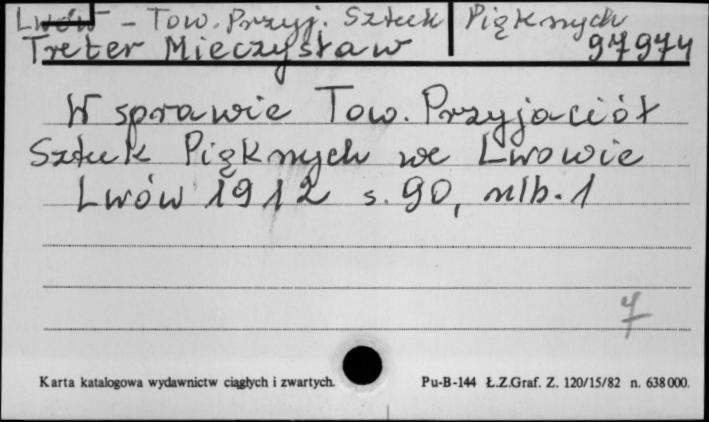 Lwów - Tow. Przyj. Sztuk Pięknych
Treter Mieczysław 97974
W sprawie Tow. Przyjaciół
Sztuk Pięknych we Lwowie
Lwów 1912 s. 90, nlb. 1
Karta katalogowa wydawnictw ciągłych i zwartych. Pu-B-144 Ł.Z.Graf. Z. 120/15/82 n. 638000.